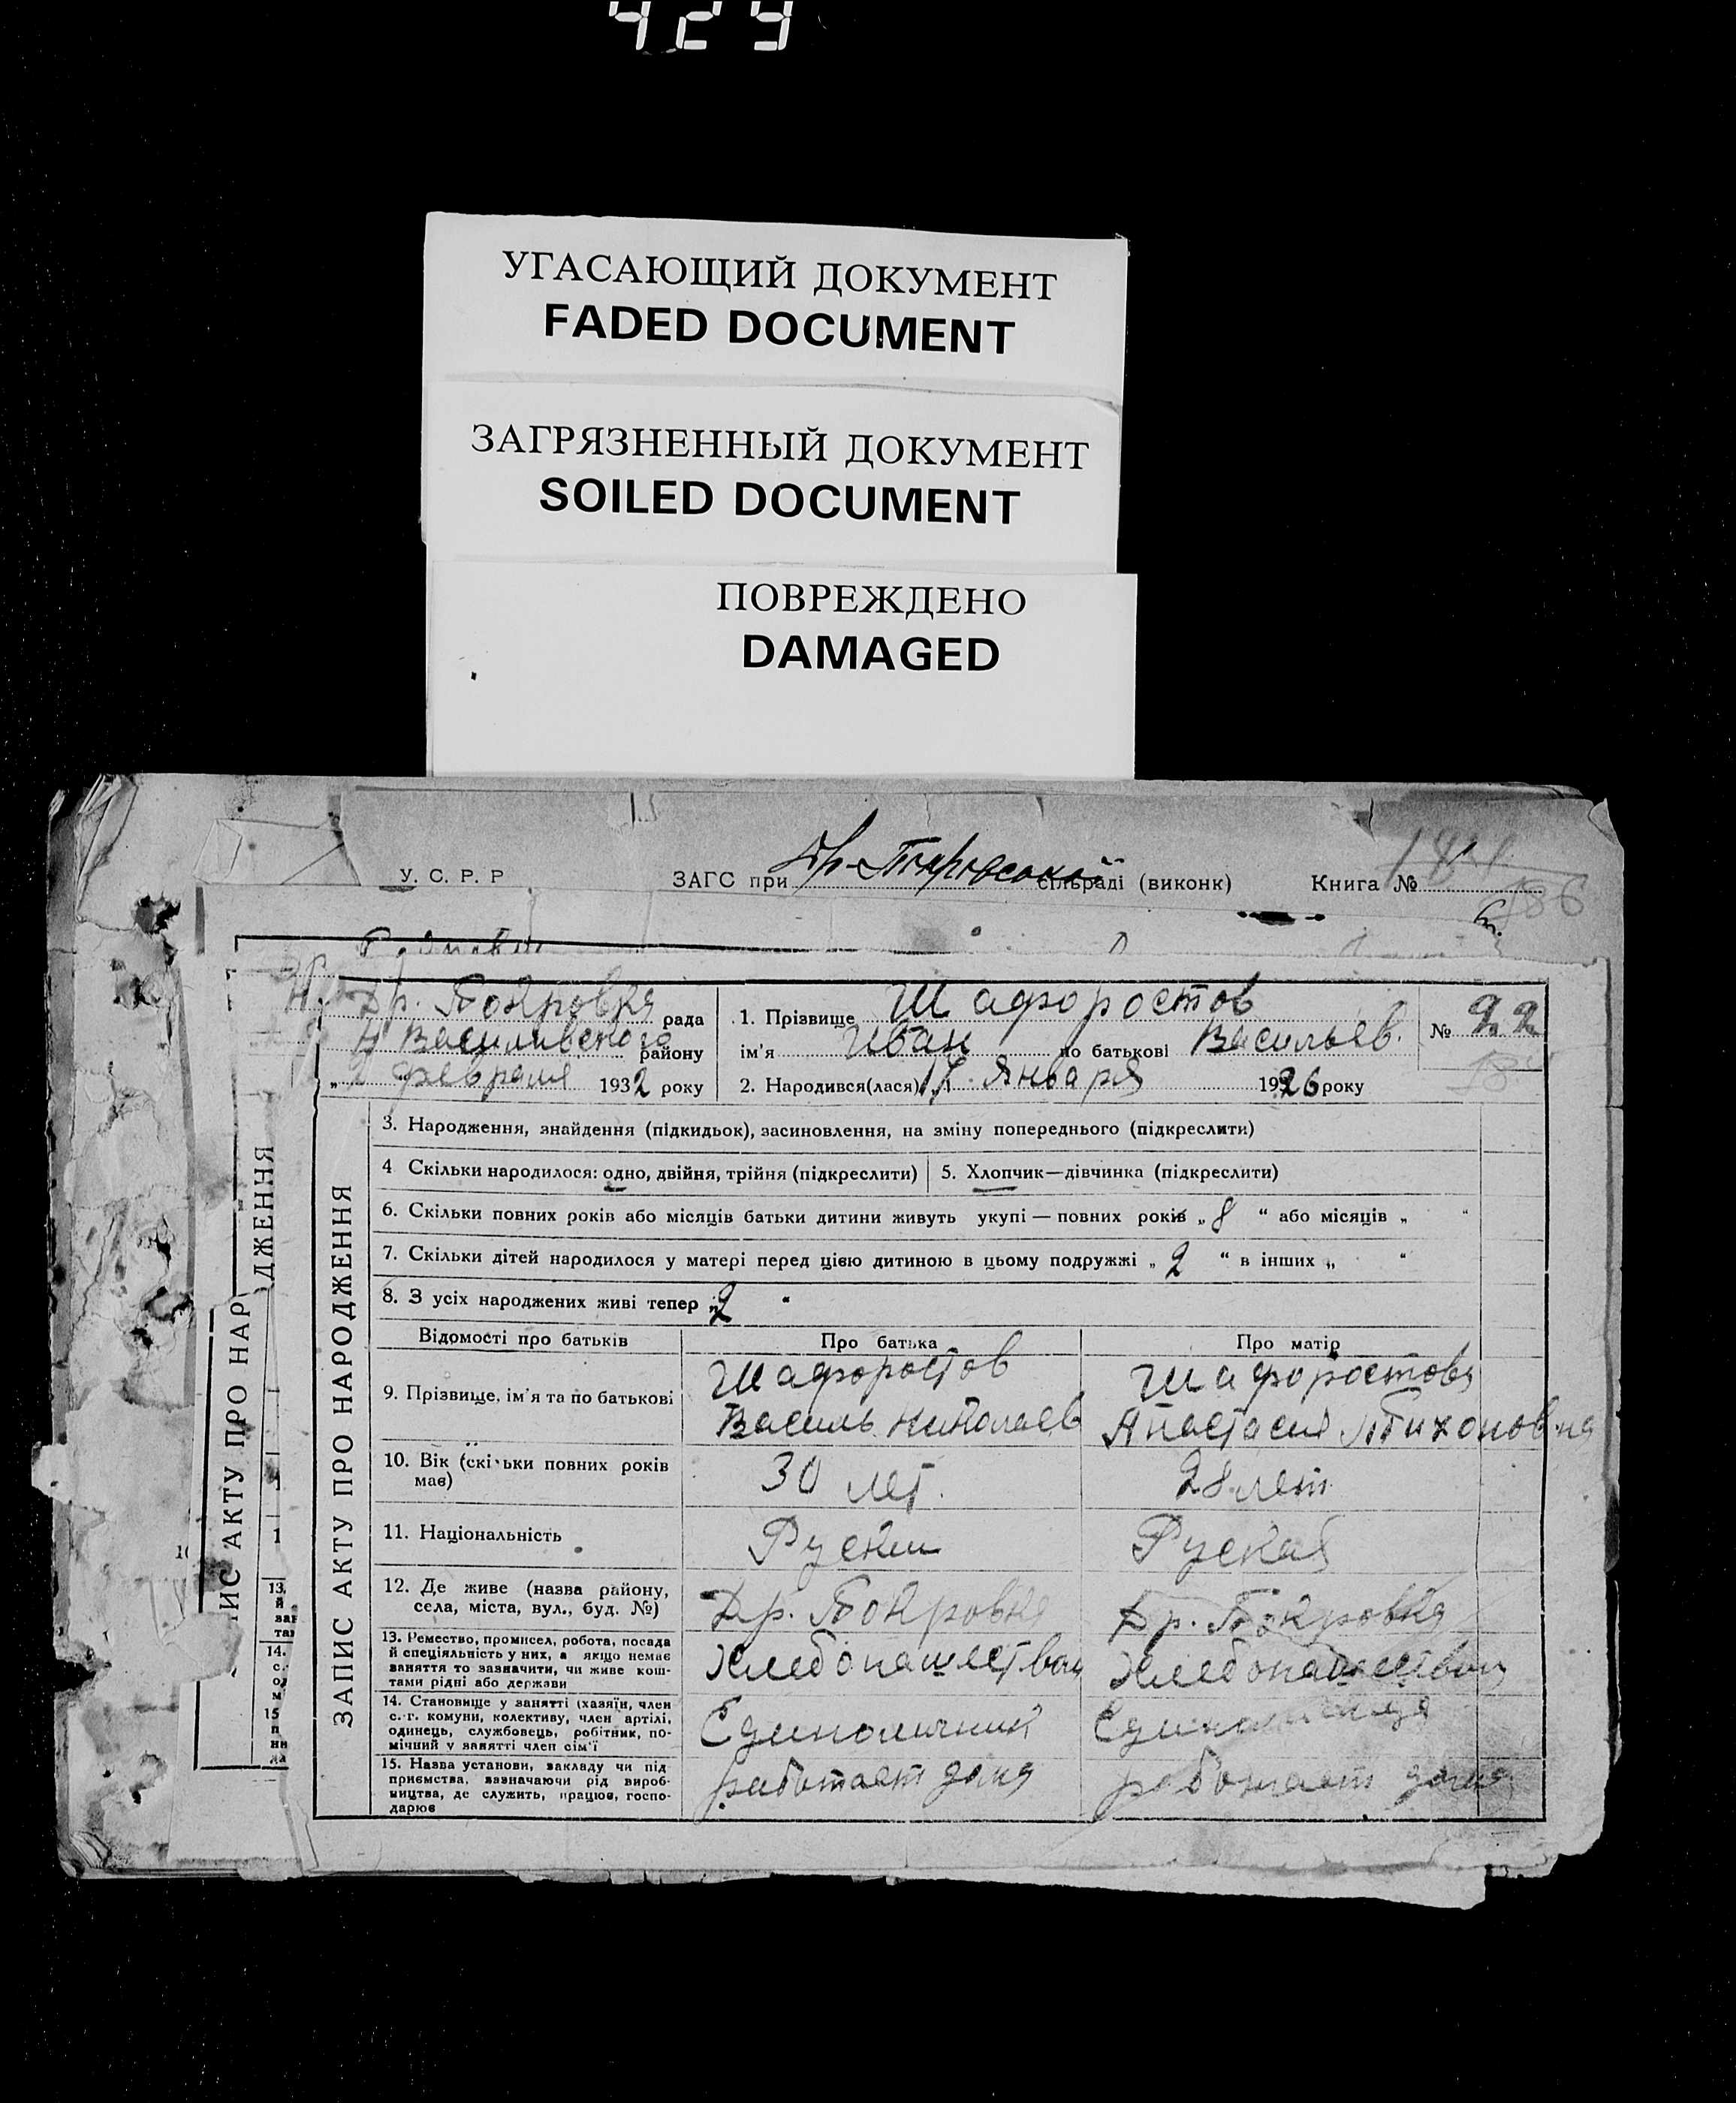 429
УГАСАЮЩИЙ ДОКУМЕНТ
FADED DOCUMENT
ЗАГРЯЗНЕННЫЙ ДОКУМЕНТ
SOILED DOCUMENT
ПОВРЕЖДЕНО
DAMAGED
У. С. Р. Р ЗАГС при сільраді (виконк) Книга №
186
Др. Покровка рада
Н Василивского району
февраля 1932 року
1. Прізвище Шафоростов
ім'я Иван по батькові Васильев.
2. Народився(лася) Января 1926 року
№ 22
ЗАПИС АКТУ ПРО НАРОДЖЕННЯ
3. Народження, знайдення (підкидьок), засиновлення, на зміну попереднього (підкреслити)
4 Скільки народилося: одно, двійня, трійня (підкреслити) 5. Хлопчик—дівчинка (підкреслити)
6. Скільки повних років або місяців батьки дитини живуть укупі — повних років „ 8 “ або місяців „ “
7. Скільки дітей народилося у матері перед цією дитиною в цьому подружжі „ 2 “ в інших „ “
8. З усіх народжених живі тепер „ 2 “
Відомості про батьків Про батька Про матір
9. Прізвище, ім'я та по батькові
Шафоростов
Василь Николаев
Шафоростова
Анастасия Тихоновна
10. Вік (скільки повних років
має)
30 лет.
28 лет.
11. Національність Руский Руская
12. Де живе (назва району,
села, міста, вул., буд. №)
Др. Покровка
Др. Покровка
13. Ремество, промисел, робота, посада
й спеціяльність у них, а якщо немає
заняття то зазначити, чи живе кош-
тами рідні або держави
Хлебопашество
Хлебопашество
14. Становище у занятті (хазяїн, член
с.-г. комуни, колективу, член артілі,
одинець, службовець, робітник, по-
мічний у занятті член сім'ї
Единоличний
15. Назва установи, закладу чи під
приємства, зазначаючи рід вироб-
ництва, де служить, працює, госпо-
дарює
работает дома
работает дома
ИС АКТУ ПРО НАР
ДЖЕННЯ
13.
14.
15